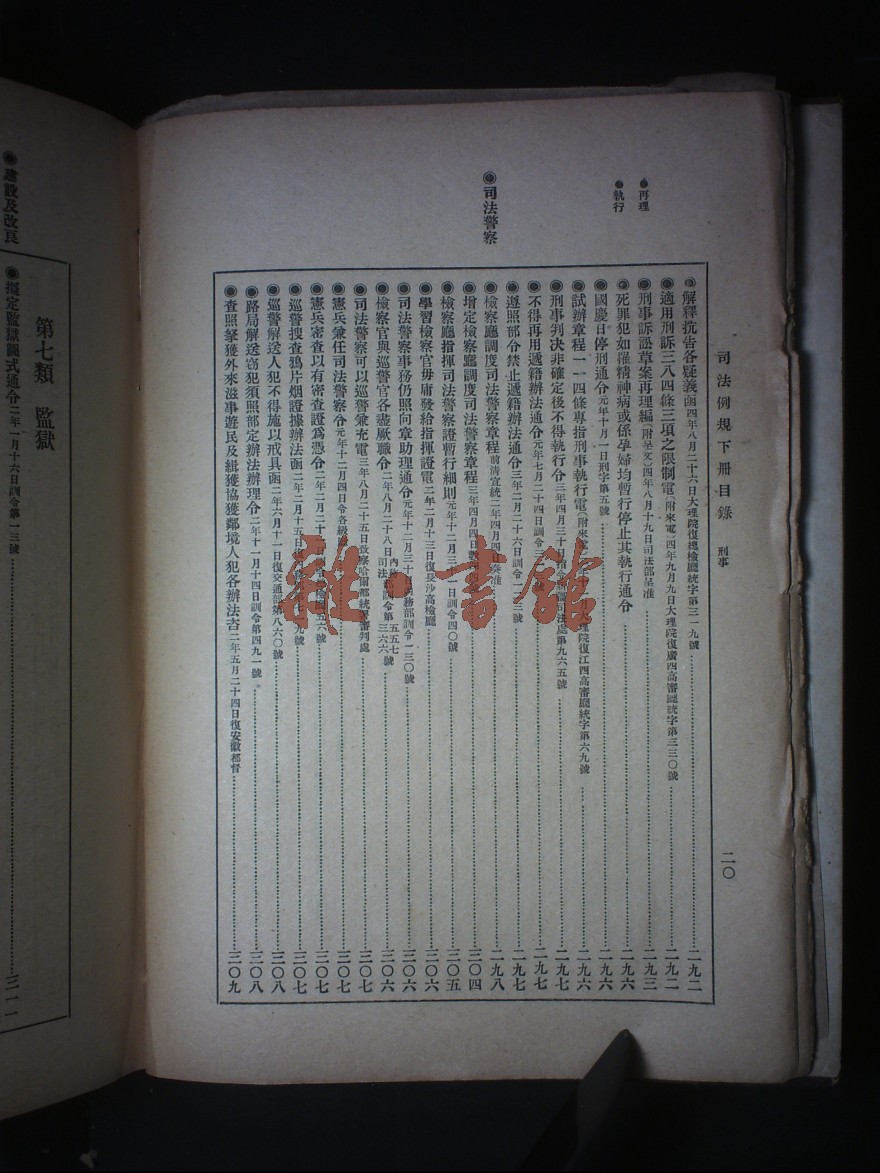 司法例規下冊目錄 刑事 二〇
●再理
●執行
◉司法警察
◉解釋抗告各疑義函四年八月二十六日大理院復總檢廳統字第三一九號 二九二
◉適用刑訴三八四條三項之限制電(附來電)四年九月九日大理院復廣西高審廳統字第三三〇號 二九二
◉刑事訴訟草案再理編(附呈文)四年八月十九日司法部呈准 二九三
◉死罪犯如罹精神病或係孕婦均暫行停止其執行通令 二九六
◉國慶日停刑通令元年十月一日刑字第五號 二九六
◉試辦章程一一四條專指刑事執行電(附來 大理院復江西高審廳統字第六九號 二九六
◉刑事判决非確定後不得執行令三年四月三十日 司法處第九六五號 二九七
◉不得再用遞籍辦法通令元年七月二十四日訓令 二九七
◉遵照部令禁止遞籍辦法通令二年二月二十六日訓令 二九七
◉檢察廳調度司法警察章程前清宣統二年四月四日奏准 二九八
◉增定檢察廳調度司法警察章程三年四月四日 三〇四
◉檢察廳指揮司法警察證暫行細則二年二月三十一日訓令四〇號 三〇五
◉學習檢察官毋庸發給指揮證電二年二月十三日復長沙高檢廳 三〇六
◉司法警察事務仍照向章助理通令元年十二月三十 務部訓令一三〇號 三〇六
◉檢察官與巡警官各盡厥職令二年八月二十八日司法 訓令第三六六號 三〇六
◉司法警察可以巡警兼充電三年八月二十五日 哈爾 審判處 三〇七
◉憲兵兼任司法警察令元年十二月四日令各級 三〇七
◉憲兵審查以有密查證爲憑令二年二月二十 五六號 三〇七
◉巡警搜查鴉片烟證據辦法函二年二月十五日 九號 三〇七
◉巡警解送人犯不得施以戒具函二年六月十一日復交通部第八六〇號 三〇八
◉路局解送竊犯須照部定辦法辦理令二年十一月十四日訓令第四九一號 三〇八
◉查照拏獲外來滋事遊民及緝獲協獲鄰境人犯各辦法咨二年五月二十四日復安徽都督 三〇九
第七類 監獄
◉建設及改良
◉擬定監獄圖式通令二年一月十六日訓令第一三號 三一一
雜·書館